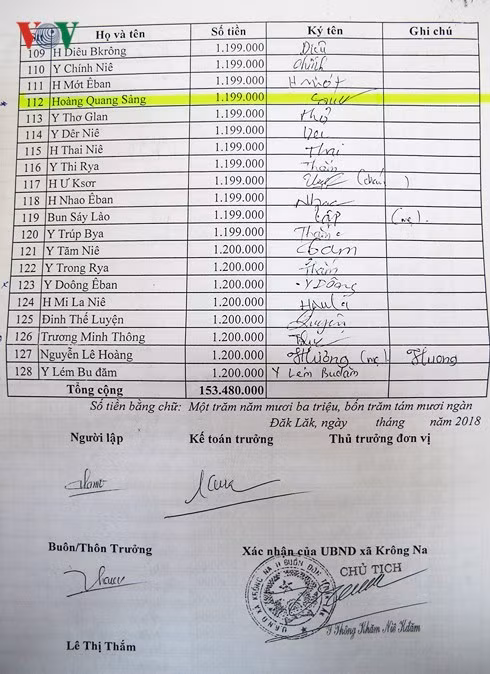 VOV
Họ và tên Số tiền Ký tên Ghi chú
109 H Diêu Bkrông 1.199.000 Diêu
110 Y Chính Niê 1.199.000 Chính
111 H Mớt Êban 1.199.000 H mướt
112 Hoàng Quang Sảng 1.199.000
113 Y Thơ Glan 1.199.000 Thơ
114 Y Dêr Niê 1.199.000
115 H Thai Niê 1.199.000 Thai
116 Y Thi Rya 1.199.000
117 H Ư Ksơr 1.199.000
118 H Nhao Êban 1.199.000
119 Bun Sáy Lào 1.199.000 (mẹ).
120 Y Trúp Bya 1.199.000
121 Y Tăm Niê 1.200.000
122 Y Trong Rya 1.200.000
123 Y Doông Êban 1.200.000 Y Dông
124 H Mi La Niê 1.200.000
125 Đinh Thế Luyện 1.200.000
126 Trương Minh Thông 1.200.000
127 Nguyễn Lê Hoàng 1.200.000 Hường (mẹ) Hương
128 Y Lém Bu đăm 1.200.000 Y Lém Buđăm
Tổng cộng 153.480.000
Số tiền bằng chữ: Một trăm năm mươi ba triệu, bốn trăm tám mươi ngàn
Đăk Lăk, ngày tháng năm 2018
Người lập Kế toán trưởng Thủ trưởng đơn vị
Buôn/Thôn Trưởng Xác nhận của UBND xã Krông Na
CHỦ TỊCH
U.B.N.D XÃ KRÔNG NA H BUÔN ĐÔN
Y Thông Khăm Niê Kđăm
Lê Thị Thắm